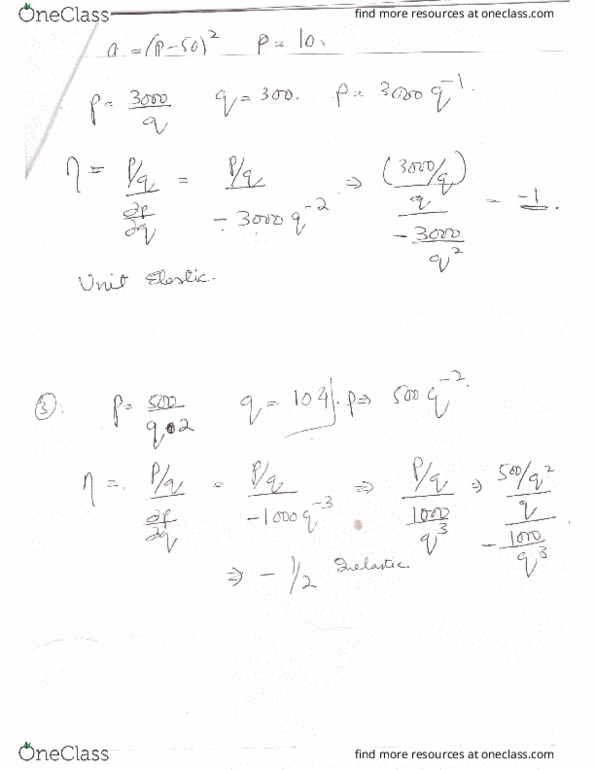 OneClass find more resources at oneclass.com
q = (P-50)² P = 10.
P = 3000/q q = 300. P = 3000 q⁻¹.
η = (P/q)/(∂P/∂q) = (P/q)/(-3000 q⁻²) ⇒ ((3000/q)/q)/(-3000/q²) = -1.
Unit Elastic.
③. P = 500/q^2 q = 104 . P ⇒ 500 q⁻².
η = . (P/q)/(∂P/∂q) = (P/q)/(-1000 q⁻³) ⇒ (P/q)/(1000/q³) ⇒ ((500/q²)/q)/(-1000/q³) .
⇒ - 1/2 Inelastic.
OneClass find more resources at oneclass.com